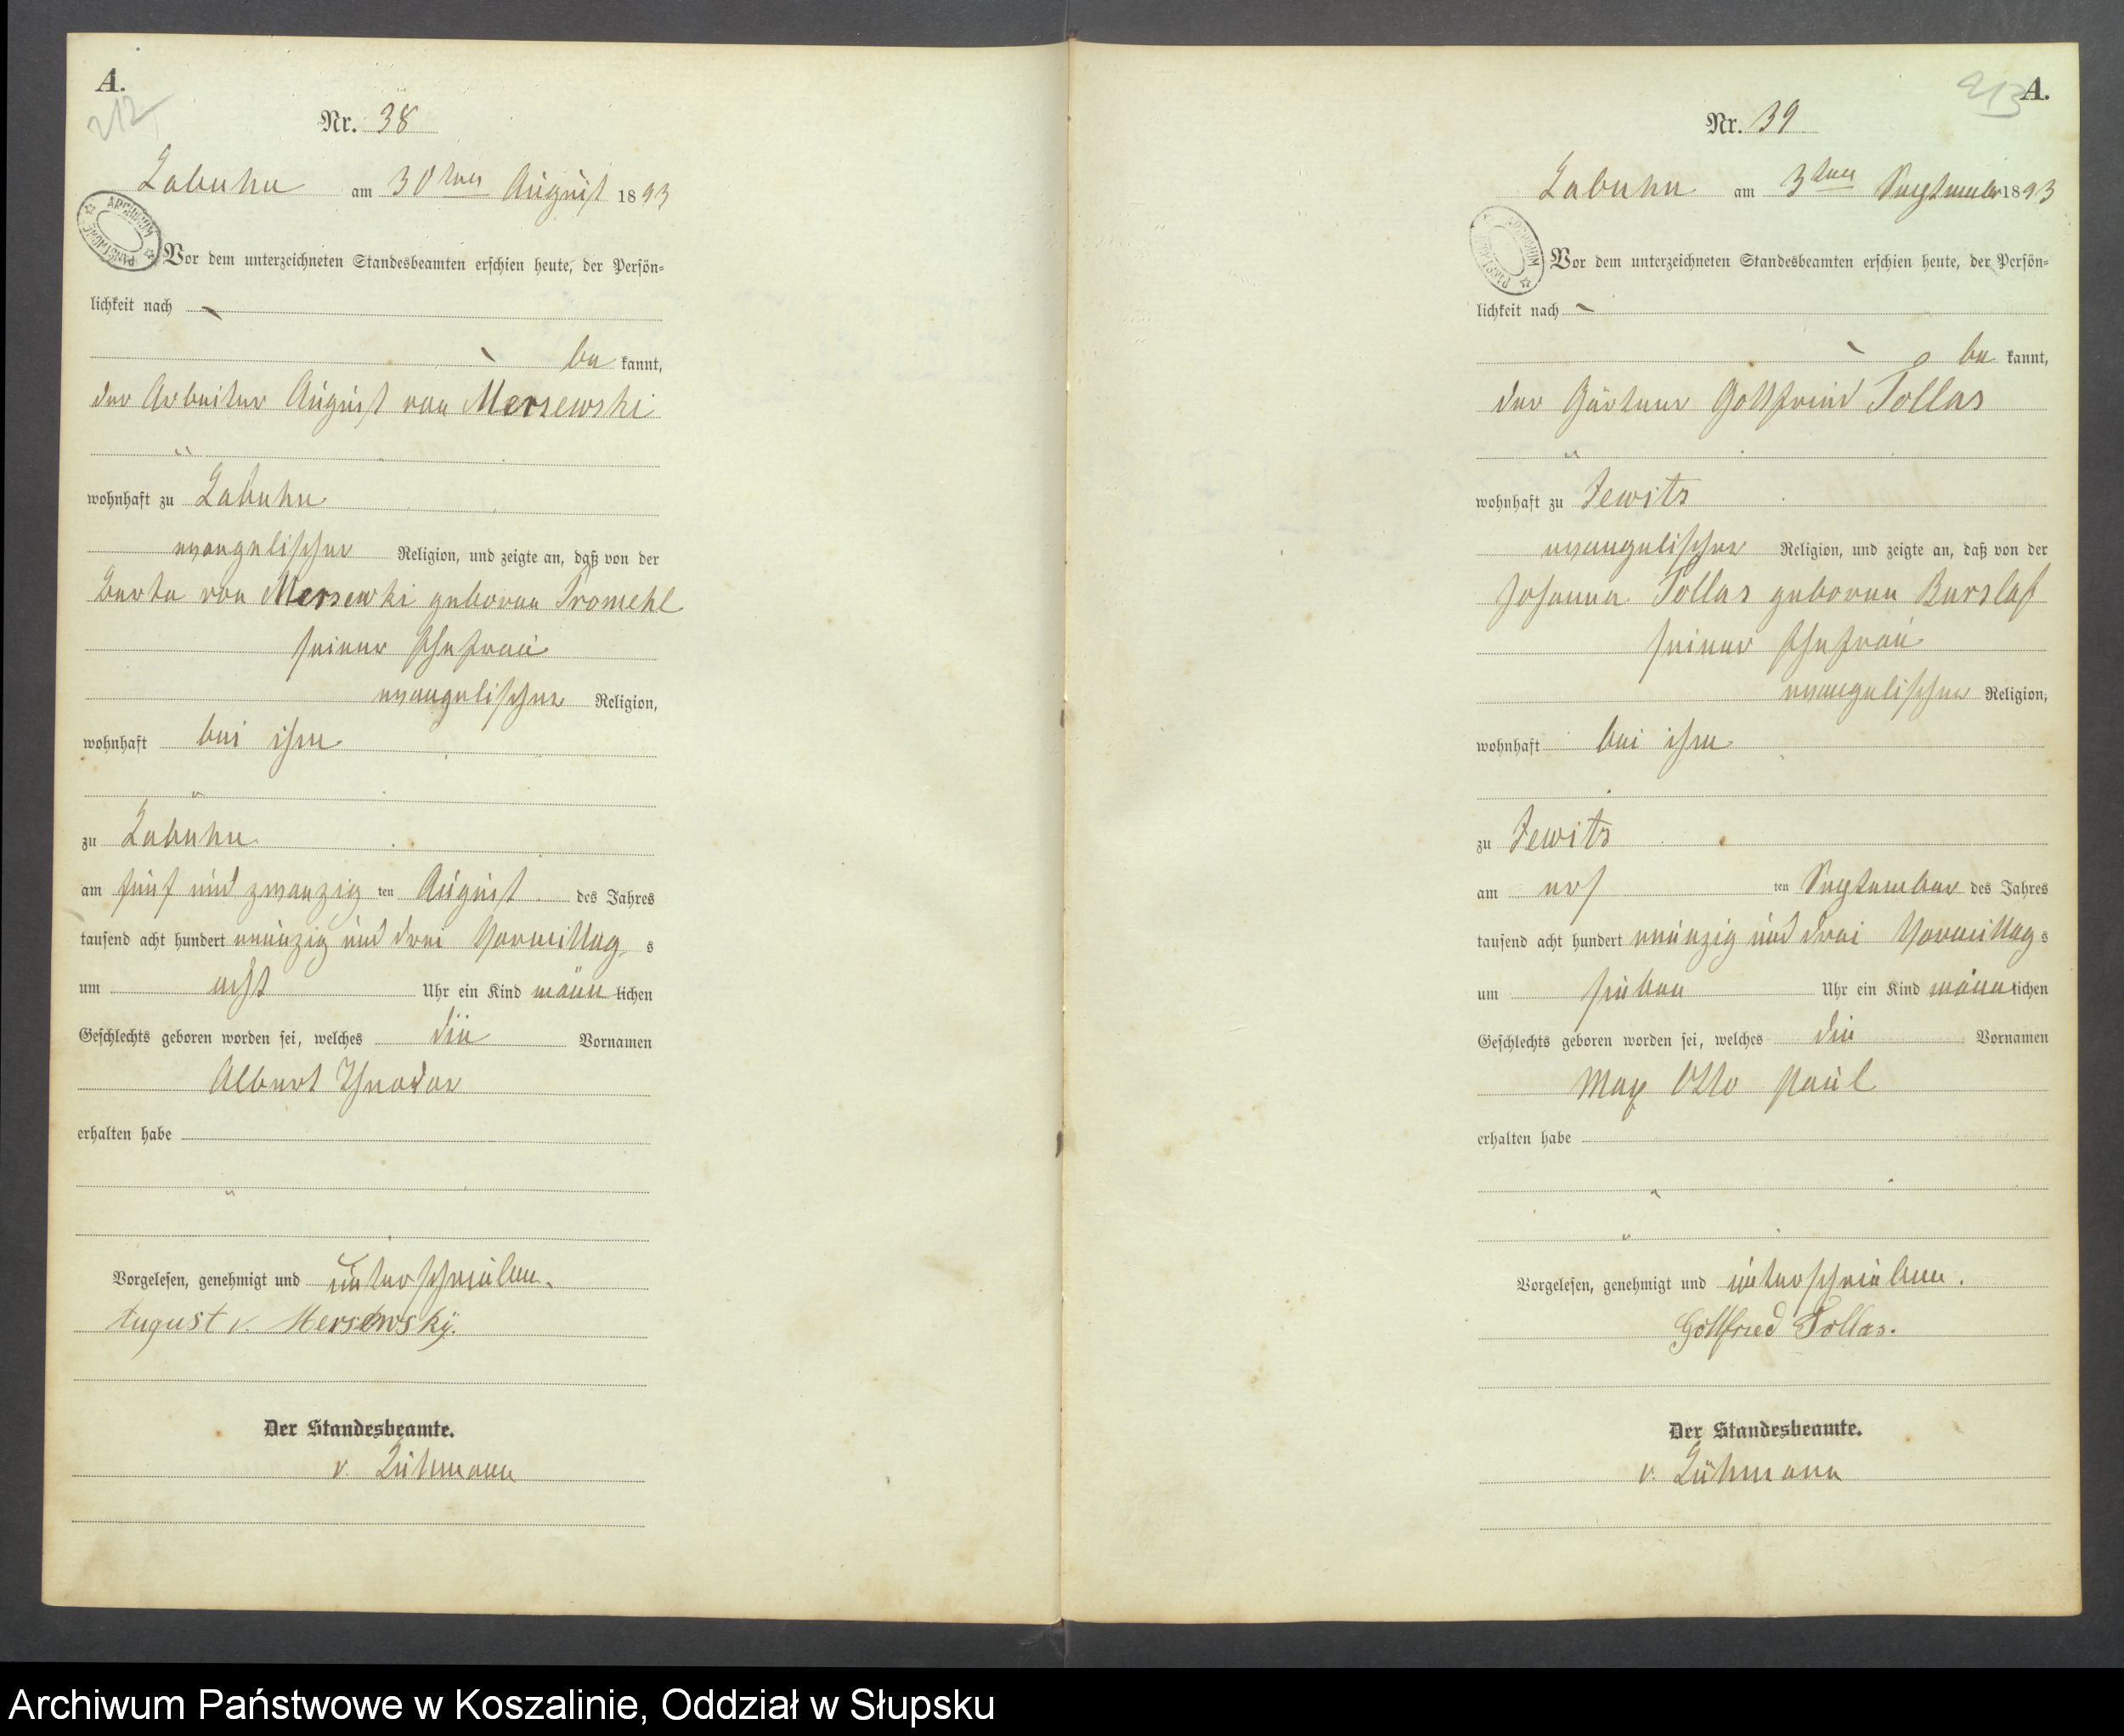 A.
212
Nr. 38
Labuhn am 30ten August 1893
ARCHIWUM PAŃSTWOWE
Vor dem unterzeichneten Standesbeamten erschien heute, der Persön=
lichkeit nach
be kannt,
der Arbeiter August von Mersewski
wohnhaft zu Labuhn
evangelischer Religion, und zeigte an, daß von der
von Mersewski geboren Tromehl
seiner Ehefrau
evangelischer Religion,
wohnhaft bei ihm
zu Labuhn
am fünf und zwanzig ten August des Jahres
tausend acht hundert neunzig und drei Vormittag s
um acht Uhr ein Kind männ lichen
Geschlechts geboren worden sei, welches die Vornamen
Albert Theodor
erhalten habe
Vorgelesen, genehmigt und unterschrieben.
August v. Mersewsky.
Der Standesbeamte.
v.
A.
213
Nr. 39
Labuhn am 3ten September 1893
ARCHIWUM PAŃSTWOWE
Vor dem unterzeichneten Standesbeamten erschien heute, der Persön=
lichkeit nach
be kannt,
der Gärtner Gottfried Tollas
wohnhaft zu Jewits
evangelischer Religion, und zeigte an, daß von der
Johanna Tollas geboren Barslaf
seiner Ehefrau
evangelischer Religion,
wohnhaft bei ihm
zu Jewits
am ers ten September des Jahres
tausend acht hundert neunzig und drei Vormittag s
um sieben Uhr ein Kind männ lichen
Geschlechts geboren worden sei, welches die Vornamen
Max Otto Paul
erhalten habe
Vorgelesen, genehmigt und unterschrieben.
Gottfried Tollas.
Der Standesbeamte.
v.
Archiwum Państwowe w Koszalinie, Oddział w Słupsku